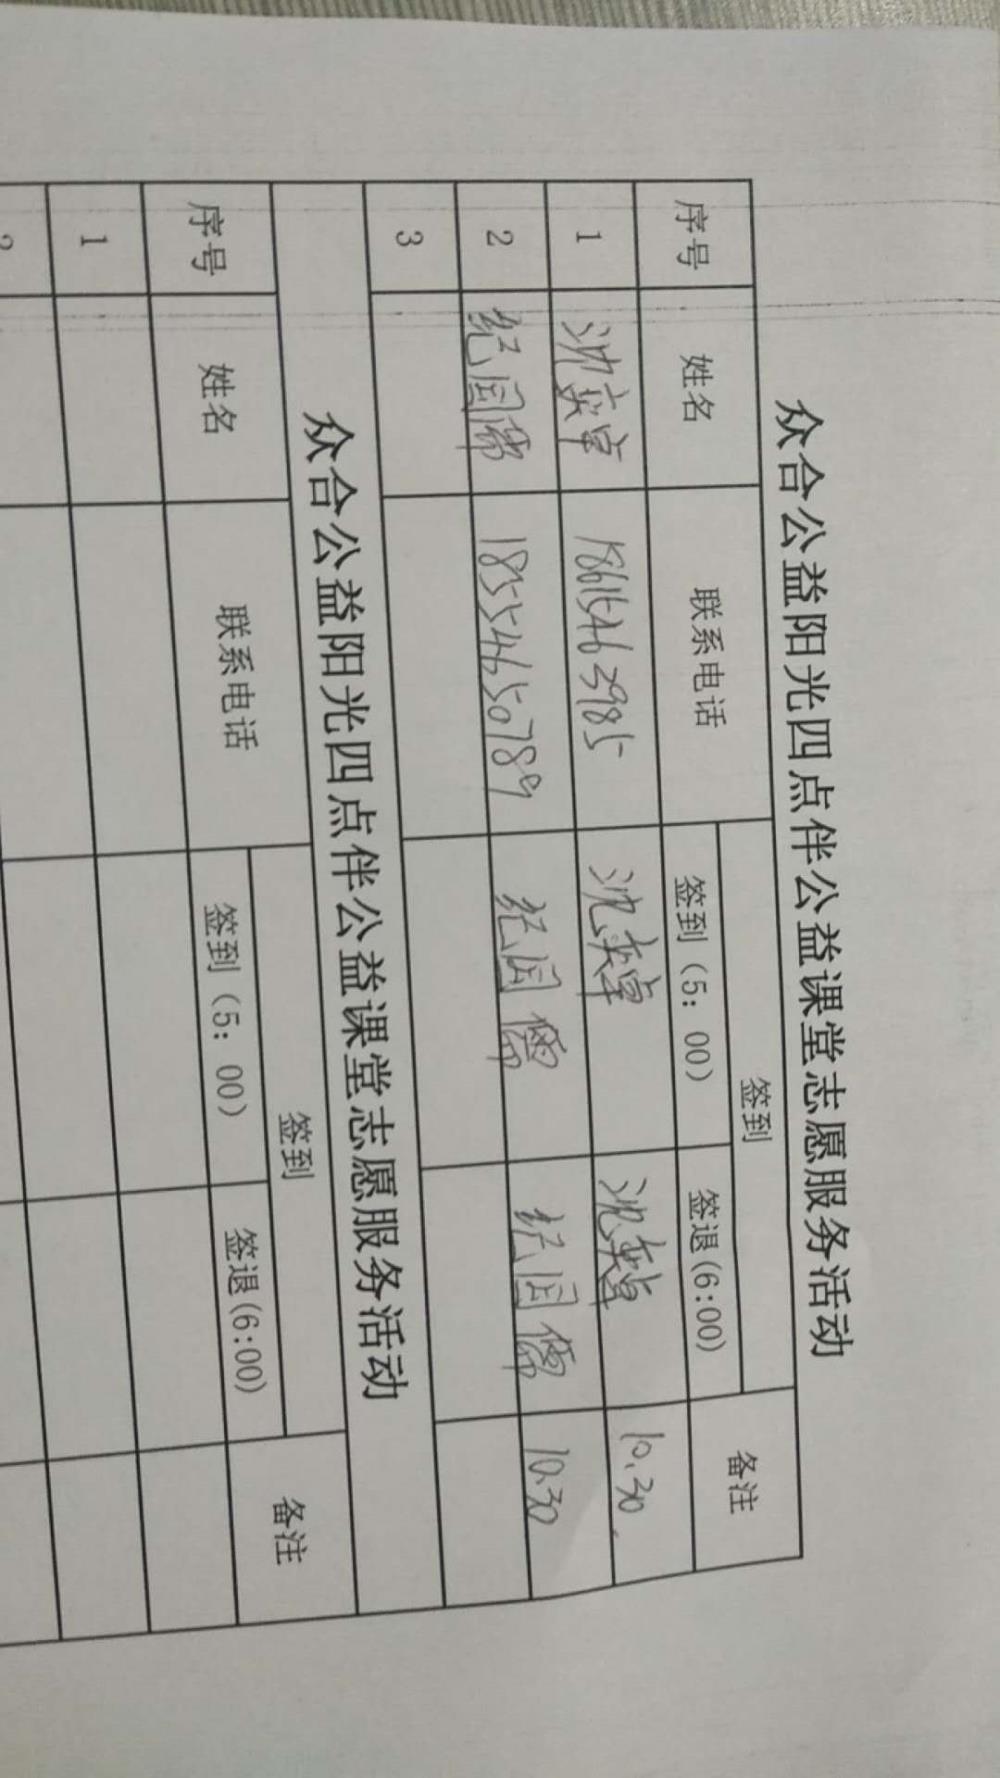 众合公益阳光四点伴公益课堂志愿服务活动
序号 姓名 联系电话 签到 备注
签到（5：00） 签退(6:00)
1 沈奕卓 18615463985 沈奕卓 沈奕卓 10.30.
2 纪国儒 18554650789 纪国儒 纪国儒 10.30
3
众合公益阳光四点伴公益课堂志愿服务活动
序号 姓名 联系电话 签到 备注
签到（5：00） 签退(6:00)
1
2